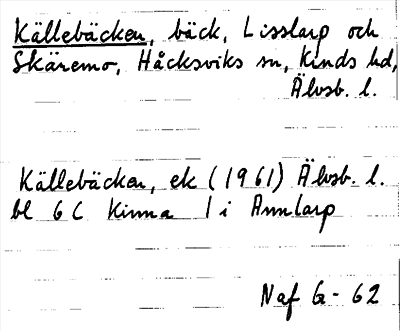 Källebäcken, bäck, Lisslarp och
Skäremo, Håcksviks sn, Kinds hd,
Älvsb. l.
Källebäcken, ek (1961) Älvsb. l.
bl 6C Kinna 1 i Annlarp
Naf G-62